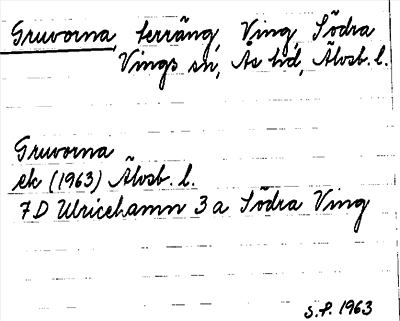 Gruvorna, terräng, Ving, Södra
Vings sn, Ås hd, Älvsb. l.
Gruvorna
ek (1963) Älvsb. l.
7D Ulricehamn 3a Södra Ving
S.F. 1963